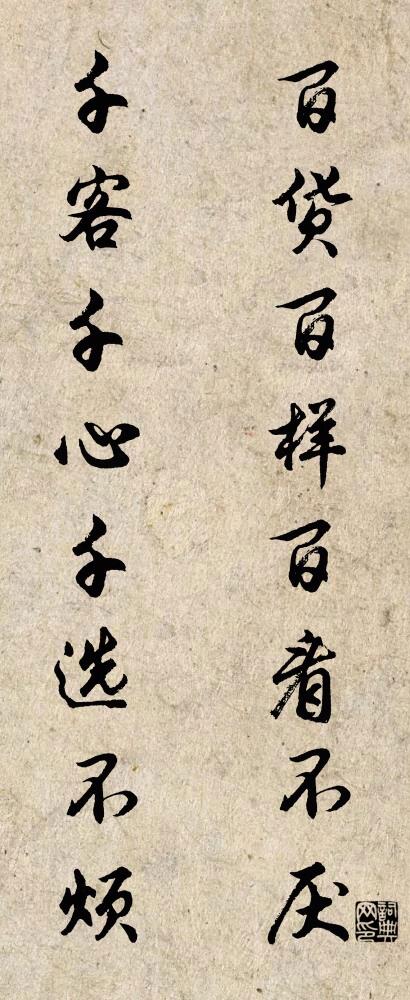 百货百样百看不厌
千客千心千选不烦
詞典网印